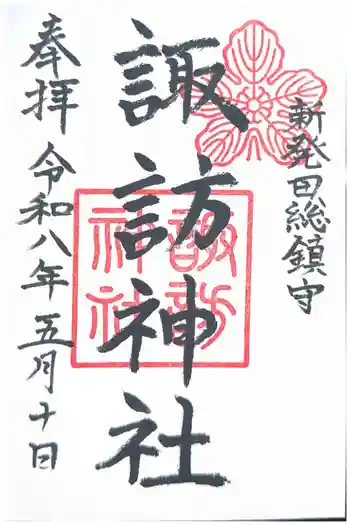 新発田総鎮守
諏訪神社
諏訪神社
奉拝 令和八年五月十日